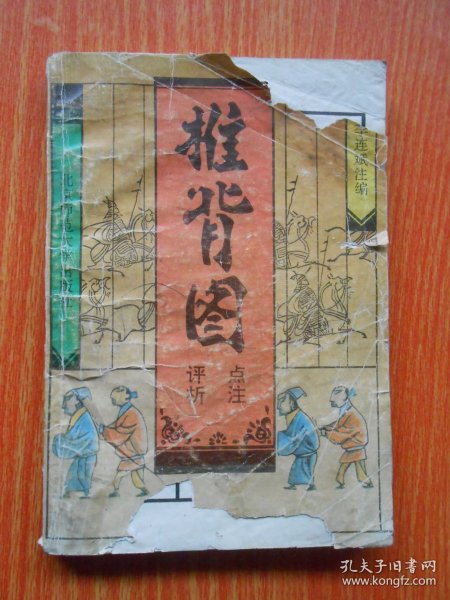 推背图
点注
评析
连斌注编
孔夫子旧书网
www.kongfz.com